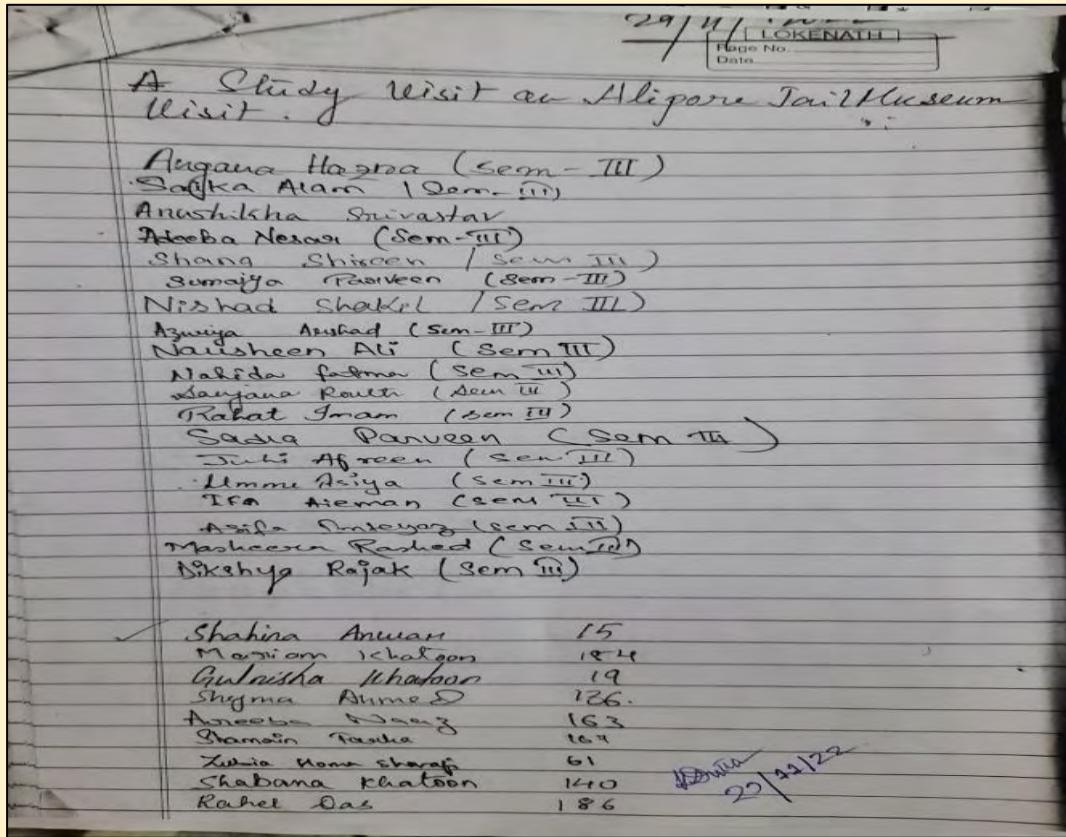 29/11/
LOKENATH
Page No.
Date
A Study Visit on Alipore Jail Museum
Visit.
Angana Hazra (Sem-III)
Alam (Sem-III)
Anushikha Srivastav
Adeeba Nesar (Sem-III)
Shana Shireen (Sem III)
Sumaiya Parveen (Sem-III)
Nishad Shakil (Sem III)
Arshad (Sem-III)
Nausheen Ali (Sem III)
Nahida fatma (Sem III)
Sanjana Routh (Sem III)
Rahat Imam (sem III)
Sadia Parveen (Sem III)
Juhi Afreen (Sem III)
Umme Asiya (Sem III)
Ifa Aieman (Sem III)
Asifa Imteyaz (sem III)
Masheera Rashed (Sem III)
Dikshya Rajak (Sem III)
Shahina Anwar 15
Mariam Khatoon 184
Gulnisha Khatoon 19
Shyma Ahmed 126.
Areeba Naaz 163
Shamain
Homa 61
Shabana Khatoon 140
Rahel Das 186